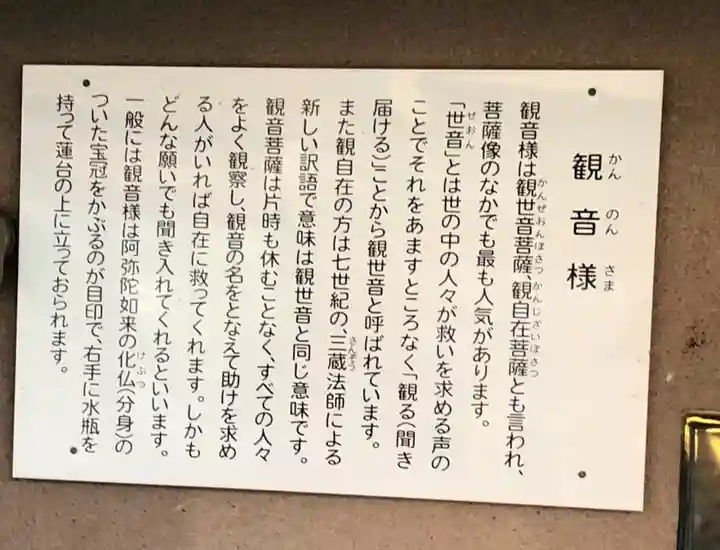 観音様
かんのんさま
観音様は観世音菩薩、観自在菩薩とも言われ、
かんぜおんぼさつ かんじざいぼさつ
菩薩像のなかでも最も人気があります。
「世音」とは世の中の人々が救いを求める声の
ぜおん
ことでそれをあますところなく「観る(聞き
届ける)」ことから観世音と呼ばれています。
また観自在の方は七世紀の、三蔵法師による
さんぞう
新しい訳語で意味は観世音と同じ意味です。
観音菩薩は片時も休むことなく、すべての人々
をよく観察し、観音の名をとなえて助けを求め
る人がいれば自在に救ってくれます。しかも
どんな願いでも聞き入れてくれるといいます。
一般には観音様は阿弥陀如来の化仏(分身)の
けぶつ
ついた宝冠をかぶるのが目印で、右手に水瓶を
持って蓮台の上に立っておられます。